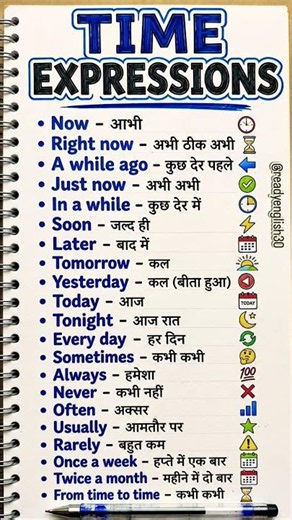 TIME
EXPRESSIONS
• Now – आभी
• Right now – अभी ठीक अभी
• A while ago – कुछ देर पहले
• Just now – अभी अभी
• In a while – कुछ देर में
• Soon – जल्द ही
• Later – बाद में
• Tomorrow – कल
• Yesterday – कल (बीता हुआ)
• Today – आज
• Tonight – आज रात
• Every day – हर दिन
• Sometimes – कभी कभी
• Always – हमेशा
• Never – कभी नहीं
• Often – अक्सर
• Usually – आमतौर पर
• Rarely – बहुत कम
• Once a week – हप्ते में एक बार
• Twice a month – महीने में दो बार
• From time to time – कभी कभी
TODAY
100
@readyenglish30